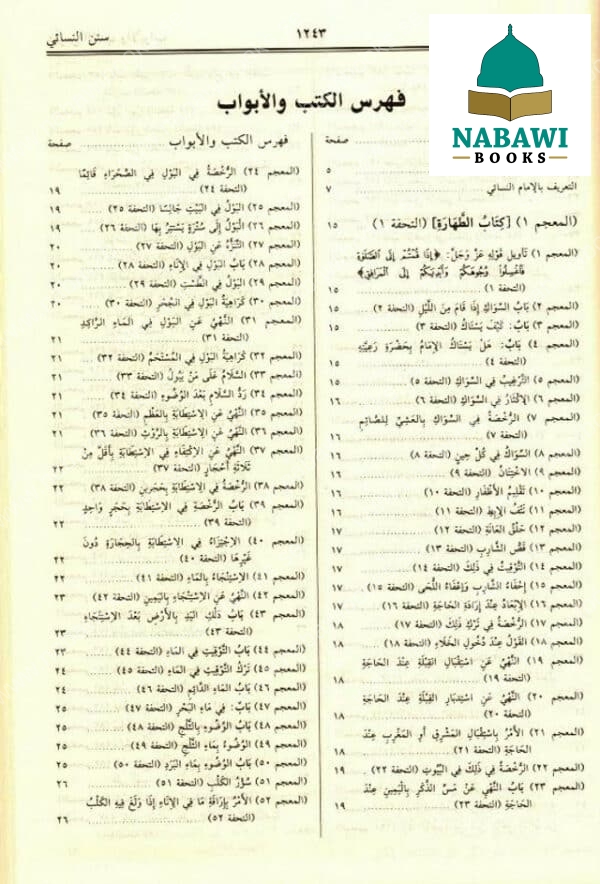 سنن النسائي
١٢٤٣
NABAWI
BOOKS
فهرس الكتب والأبواب
صفحة
٥
التعريف بالإمام النسائي ٧
(المعجم ١) [كِتَابُ الطَّهَارَةِ] (التحفة ١) ١٥
(المعجم ١) تأويل قوله عَزَّ وَجَلَّ: ﴿إِذَا قُمْتُمْ إِلَى الصَّلَوٰةِ
فَاغْسِلُوا وُجُوهَكُمْ وَأَيْدِيَكُمْ إِلَى الْمَرَافِقِ﴾
(التحفة ١) ١٥
(المعجم ٢) بَابُ السِّوَاكِ إِذَا قَامَ مِنَ اللَّيْلِ (التحفة ٢) ١٥
(المعجم ٣) بَابٌ: كَيْفَ يَسْتَاكُ (التحفة ٣) ١٥
(المعجم ٤) بَابٌ: هَلْ يَسْتَاكُ الإِمَامُ بِحَضْرَةِ رَعِيَّتِهِ
(التحفة ٤) ١٥
(المعجم ٥) التَّرْغِيبُ فِي السِّوَاكِ (التحفة ٥) ١٥
(المعجم ٦) الإِكْثَارُ فِي السِّوَاكِ (التحفة ٦) ١٦
(المعجم ٧) الرُّخْصَةُ فِي السِّوَاكِ بِالْعَشِيِّ لِلصَّائِمِ
(التحفة ٧) ١٦
(المعجم ٨) السِّوَاكُ فِي كُلِّ حِينٍ (التحفة ٨) ١٦
(المعجم ٩) الاخْتِتَانُ (التحفة ٩) ١٦
(المعجم ١٠) تَقْلِيمُ الأَظْفَارِ (التحفة ١٠) ١٦
(المعجم ١١) نَتْفُ الإِبِطِ (التحفة ١١) ١٦
(المعجم ١٢) حَلْقُ الْعَانَةِ (التحفة ١٢) ١٧
(المعجم ١٣) قَصُّ الشَّارِبِ (التحفة ١٣) ١٧
(المعجم ١٤) التَّوْقِيتُ فِي ذَلِكَ (التحفة ١٤) ١٧
(المعجم ١٥) إِحْفَاءُ الشَّارِبِ وَإِعْفَاءُ اللِّحَى (التحفة ١٥) ١٧
(المعجم ١٦) الإِبْعَادُ عِنْدَ إِرَادَةِ الْحَاجَةِ (التحفة ١٦) ١٧
(المعجم ١٧) الرُّخْصَةُ فِي تَرْكِ ذَلِكَ (التحفة ١٧) ١٨
(المعجم ١٨) الْقَوْلُ عِنْدَ دُخُولِ الْخَلَاءِ (التحفة ١٨) ١٨
(المعجم ١٩) النَّهْيُ عَنِ اسْتِقْبَالِ الْقِبْلَةِ عِنْدَ الْحَاجَةِ
(التحفة ١٩) ١٨
(المعجم ٢٠) النَّهْيُ عَنِ اسْتِدْبَارِ الْقِبْلَةِ عِنْدَ الْحَاجَةِ
(التحفة ٢٠) ١٨
(المعجم ٢١) الأَمْرُ بِاسْتِقْبَالِ الْمَشْرِقِ أَوِ الْمَغْرِبِ عِنْدَ
الْحَاجَةِ (التحفة ٢١) ١٨
(المعجم ٢٢) الرُّخْصَةُ فِي ذَلِكَ فِي الْبُيُوتِ (التحفة ٢٢) ١٩
(المعجم ٢٣) بَابُ النَّهْيِ عَنْ مَسِّ الذَّكَرِ بِالْيَمِينِ عِنْدَ
الْحَاجَةِ (التحفة ٢٣) ١٩
فهرس الكتب والأبواب صفحة
(المعجم ٢٤) الرُّخْصَةُ فِي الْبَوْلِ فِي الصَّحْرَاءِ قَائِمًا
(التحفة ٢٤) ١٩
(المعجم ٢٥) الْبَوْلُ فِي الْبَيْتِ جَالِسًا (التحفة ٢٥) ١٩
(المعجم ٢٦) الْبَوْلُ إِلَى سُتْرَةٍ يَسْتَتِرُ بِهَا (التحفة ٢٦) ١٩
(المعجم ٢٧) التَّنَزُّهُ عَنِ الْبَوْلِ (التحفة ٢٧) ٢٠
(المعجم ٢٨) بَابُ الْبَوْلِ فِي الإِنَاءِ (التحفة ٢٨) ٢٠
(المعجم ٢٩) الْبَوْلُ فِي الطَّسْتِ (التحفة ٢٩) ٢٠
(المعجم ٣٠) كَرَاهِيَةُ الْبَوْلِ فِي الْجُحْرِ (التحفة ٣٠) ٢٠
(المعجم ٣١) النَّهْيُ عَنِ الْبَوْلِ فِي الْمَاءِ الرَّاكِدِ
(التحفة ٣١) ٢١
(المعجم ٣٢) كَرَاهِيَةُ الْبَوْلِ فِي الْمُسْتَحَمِّ (التحفة ٣٢) ٢١
(المعجم ٣٣) السَّلَامُ عَلَى مَنْ يَبُولُ (التحفة ٣٣) ٢١
(المعجم ٣٤) رَدُّ السَّلَامِ بَعْدَ الْوُضُوءِ (التحفة ٣٤) ٢١
(المعجم ٣٥) النَّهْيُ عَنِ الاِسْتِطَابَةِ بِالْعَظْمِ (التحفة ٣٥) ٢١
(المعجم ٣٦) النَّهْيُ عَنِ الاِسْتِطَابَةِ بِالرَّوْثِ (التحفة ٣٦) ٢١
(المعجم ٣٧) النَّهْيُ عَنِ الاِكْتِفَاءِ فِي الاِسْتِطَابَةِ بِأَقَلَّ مِنْ
ثَلَاثَةِ أَحْجَارٍ (التحفة ٣٧) ٢٢
(المعجم ٣٨) الرُّخْصَةُ فِي الاِسْتِطَابَةِ بِحَجَرَيْنِ (التحفة ٣٨) ٢٢
(المعجم ٣٩) بَابُ الرُّخْصَةِ فِي الاِسْتِطَابَةِ بِحَجَرٍ وَاحِدٍ
(التحفة ٣٩) ٢٢
(المعجم ٤٠) الاِجْتِزَاءُ فِي الاِسْتِطَابَةِ بِالْحِجَارَةِ دُونَ
غَيْرِهَا (التحفة ٤٠) ٢٢
(المعجم ٤١) الاِسْتِنْجَاءُ بِالْمَاءِ (التحفة ٤١) ٢٢
(المعجم ٤٢) النَّهْيُ عَنِ الاِسْتِنْجَاءِ بِالْيَمِينِ (التحفة ٤٢) ٢٣
(المعجم ٤٣) بَابُ دَلْكِ الْيَدِ بِالأَرْضِ بَعْدَ الاِسْتِنْجَاءِ
(التحفة ٤٣) ٢٣
(المعجم ٤٤) بَابُ التَّوْقِيتِ فِي الْمَاءِ (التحفة ٤٤) ٢٣
(المعجم ٤٥) تَرْكُ التَّوْقِيتِ فِي الْمَاءِ (التحفة ٤٥) ٢٤
(المعجم ٤٦) بَابُ الْمَاءِ الدَّائِمِ (التحفة ٤٦) ٢٤
(المعجم ٤٧) بَابٌ: فِي مَاءِ الْبَحْرِ (التحفة ٤٧) ٢٥
(المعجم ٤٨) بَابُ الْوُضُوءِ بِالثَّلْجِ (التحفة ٤٨) ٢٥
(المعجم ٤٩) الْوُضُوءُ بِمَاءِ الثَّلْجِ (التحفة ٤٩) ٢٥
(المعجم ٥٠) بَابُ الْوُضُوءِ بِمَاءِ الْبَرَدِ (التحفة ٥٠) ٢٥
(المعجم ٥١) سُؤْرُ الْكَلْبِ (التحفة ٥١) ٢٦
(المعجم ٥٢) الأَمْرُ بِإِرَاقَةِ مَا فِي الإِنَاءِ إِذَا وَلَغَ فِيهِ الْكَلْبُ
(التحفة ٥٢) ٢٦